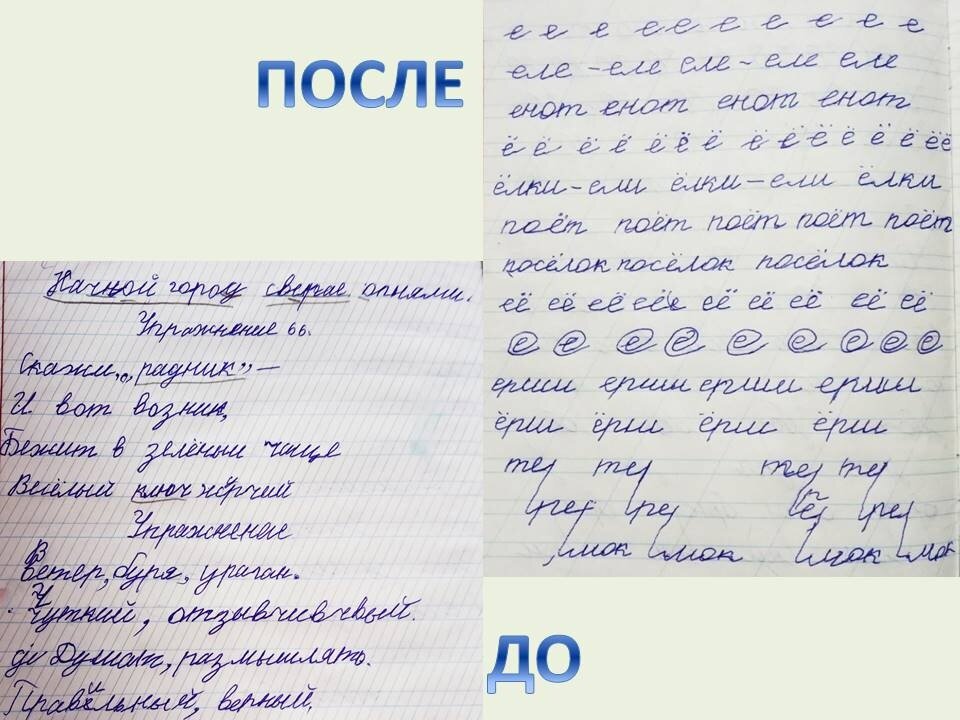 ПОСЛЕ
е е е е е е е е е е
еле - еле еле - еле еле
енот енот енот енот
ё ё ё ё ё ё ё ё ё ё ё ё ё ё ё ё ё
ёлки - ели ёлки - ели ёлки
поёт поёт поёт поёт поёт
посёлок посёлок посёлок
её её её её её её её её её
е е е е е е е е е
ерши ерши ерши ерши
ёрш ёрш ёрш ёрш
тер тер тер тер
рер ре рер
мок мок мок мок
Начной город сверае огнями.
Упражнение 66.
Скажи, „радник" —
И вот возник,
Бежит в зелёный чаще
Весёлый ключ жёрчий
Упражнение
Ветер, буря, ураган.
Чуткий, отзывчивчвый.
Думат, размышлять.
Правильный, верный.
ДО